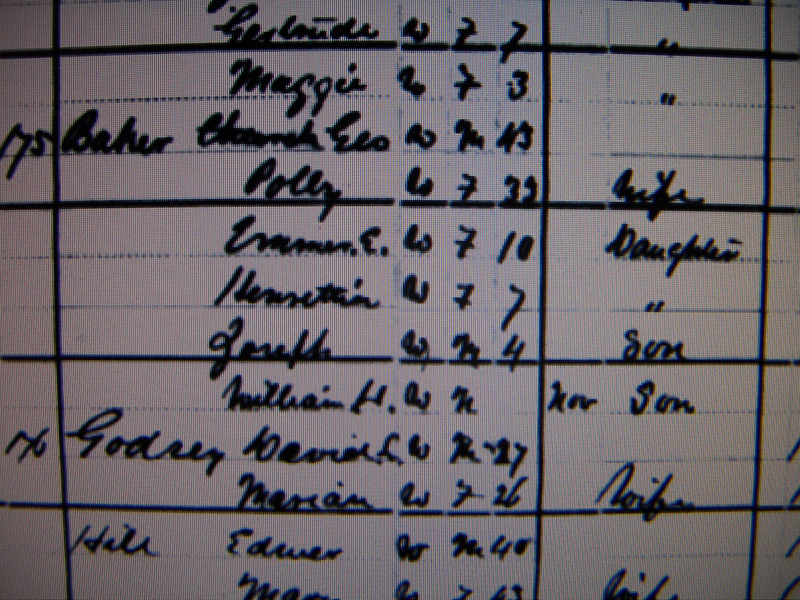 Gertrude W F 7 "
Maggie W F 3 "
175 Baker Geo W M 43
Polly W F 39 Wife
Emmer. E. W F 10 Daughter
Henrettia W F 7 "
Joseph W M 4 Son
William H. W M Nov Son
176 Godsey David L W M 27
Marian W F 26 Wife
Hill W M 40
W F 43 Wife